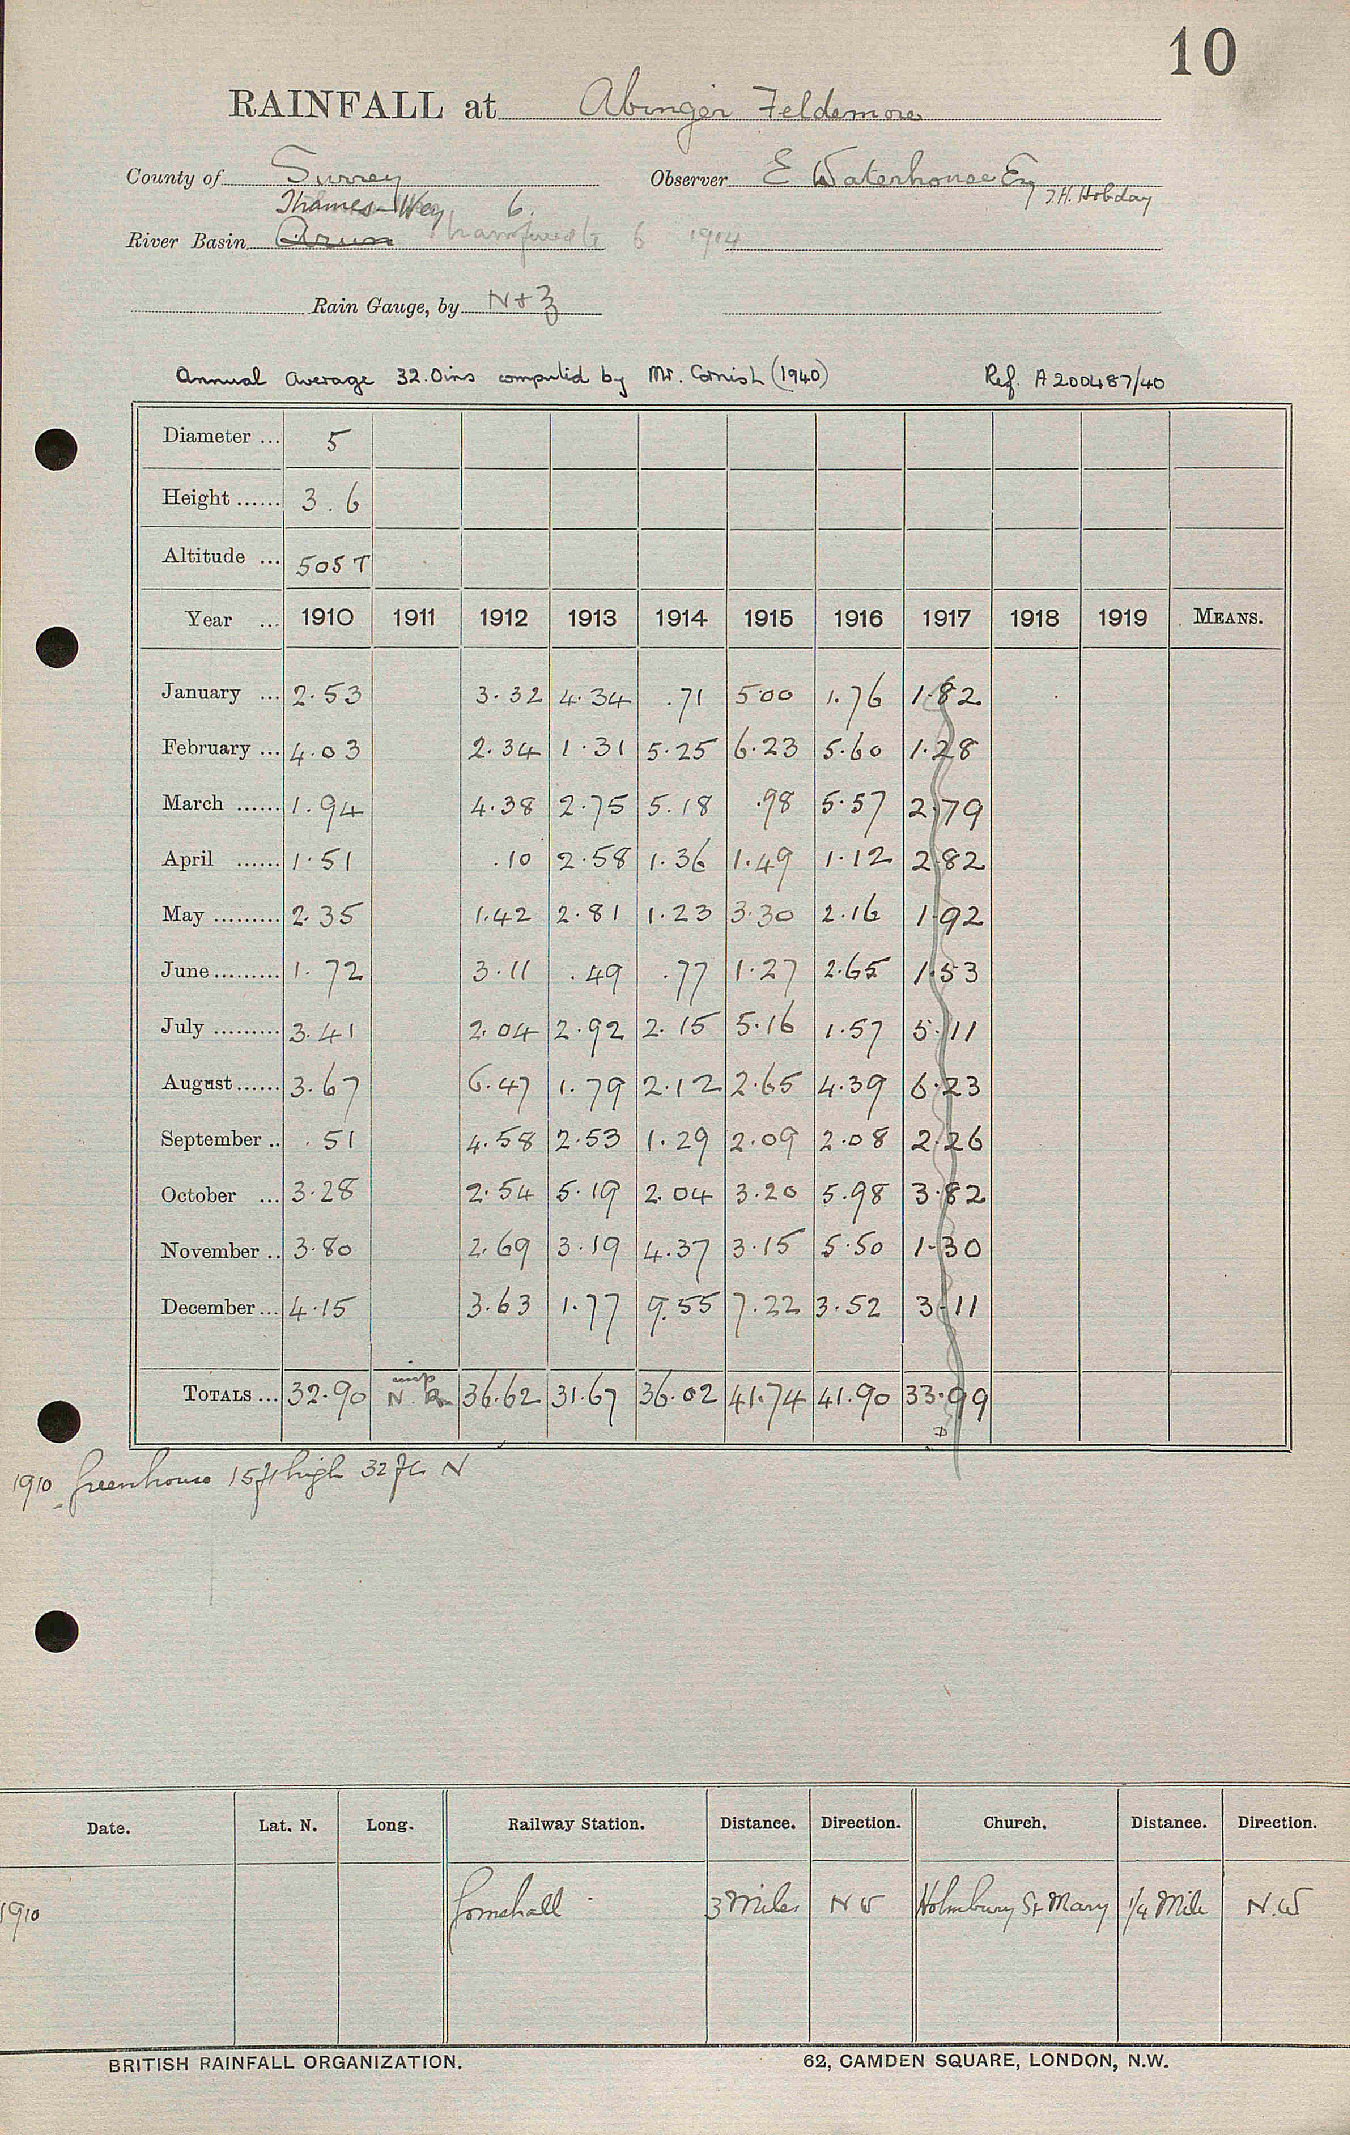 10
RAINFALL at Abinger Feldemore
County of Surrey Observer E Waterhouse Esq J.H. Hobday
Thames-Wey 6.
River Basin Arun transferred to 6 1914
Rain Gauge, by N+Z
Annual Average 32.0ins computed by Mr. Cornish (1940) Ref. A200487/40
Diameter ... 5
Height ...... 3.6
Altitude ... 505 T
Year ... 1910 1911 1912 1913 1914 1915 1916 1917 1918 1919 MEANS.
January ... 2.53 3.32 4.34 .71 5.00 1.76 1.82
February ... 4.03 2.34 1.31 5.25 6.23 5.60 1.28
March ...... 1.94 4.38 2.75 5.18 .98 5.57 2.79
April ...... 1.51 .10 2.58 1.36 1.49 1.12 2.82
May ......... 2.35 1.42 2.81 1.23 3.30 2.16 1.92
June ......... 1.72 3.11 .49 .77 1.27 2.65 1.53
July ......... 3.41 2.04 2.92 2.15 5.16 1.57 5.11
August ...... 3.67 6.47 1.79 2.12 2.65 4.39 6.23
September .. .51 4.58 2.53 1.29 2.09 2.08 2.26
October ... 3.28 2.54 5.19 2.04 3.20 5.98 3.82
November .. 3.80 2.69 3.19 4.37 3.15 5.50 1.30
December ... 4.15 3.63 1.77 9.55 7.22 3.52 3.11
TOTALS ... 32.90 36.62 31.67 36.02 41.74 41.90 33.99
1910 Greenhouse 15ft high 32 ft N
Date. Lat. N. Long. Railway Station. Distance. Direction. Church. Distance. Direction.
1910 Gomshall 3 Miles NW Holmbury St Mary 1/4 Mile N.W
BRITISH RAINFALL ORGANIZATION. 62, CAMDEN SQUARE, LONDON, N.W.